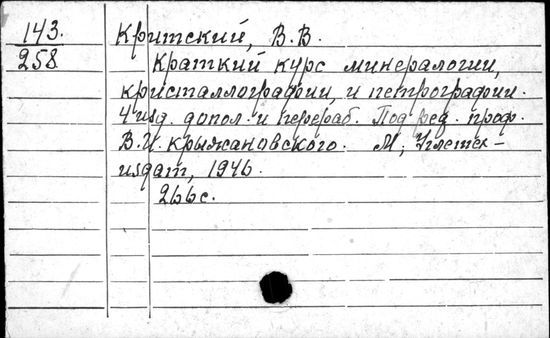 143.
258
Критский, В.В.
Краткий курс минералогии,
кристаллографии и петрографии.
4 изд. допол. и перераб. Под ред. проф.
В.И. Крыжановского. М., Углетех-
издат, 1946.
266 с.